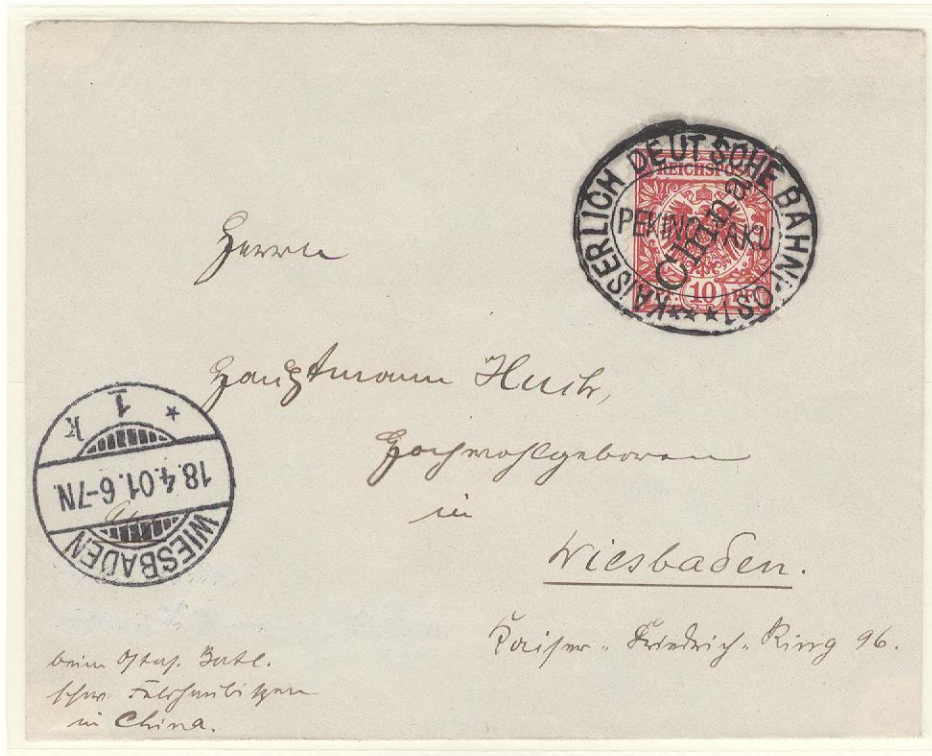 KAISERLICH DEUTSCHE BAHNPOST
REICHSPOST
PEKING TAKU
China
10 PF
Herrn
Hauptmann Huch,
Hochwohlgeboren
in
Wiesbaden.
Kaiser-Friedrich-Ring 96.
WIESBADEN
18.4.01.6-7N.
* 1 k
beim Ostas. Batl.
schw. Feldhaubitzen
in China.